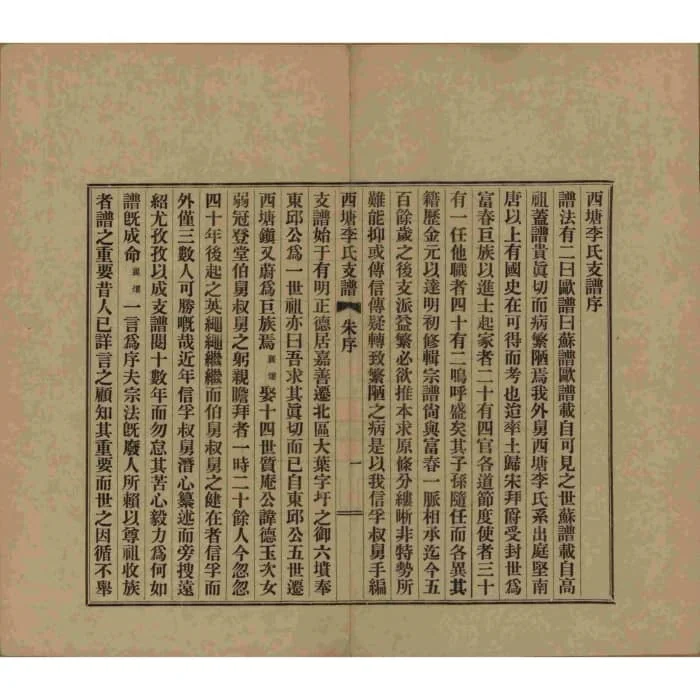 西塘李氏支譜序
譜法有二曰歐譜曰蘇譜歐譜載自可見之世蘇譜載自高
祖蓋譜貴眞切而病繁陋焉我外舅西塘李氏系出庭堅南
唐以上有國史在可得而考也迨率土歸宋拜爵受封世爲
富春巨族以進士起家者二十有四官各道節度使者三十
有一任他職者四十有二嗚呼盛矣其子孫隨任而各異其
籍歷金元以達明初修輯宗譜尙與富春一脈相承迄今五
百餘歲之後支派益繁必欲推本求原條分縷晰非特勢所
難能抑或傳信傳疑轉致繁陋之病是以我信孚叔舅手編
西塘李氏支譜 朱序 一
支譜始于有明正德居嘉善遷北區大葉字圩之御六墳奉
東邱公爲一世祖亦曰吾求其眞切而已自東邱公五世遷
西塘鎭又蔚爲巨族焉襄增娶十四世質庵公諱德玉次女
弱冠登堂伯舅叔舅之躬親瞻拜者一時二十餘人今忽忽
四十年後起之英繩繩繼繼而伯舅叔舅之健在者信孚而
外僅三數人可勝嘅哉近年信孚叔舅潛心纂述而旁搜遠
紹尤孜孜以成支譜閱十數年而勿怠其苦心毅力爲何如
譜旣成命襄增一言爲序夫宗法旣廢人所賴以尊祖收族
者譜之重要昔人已詳言之顧知其重要而世之因循不舉